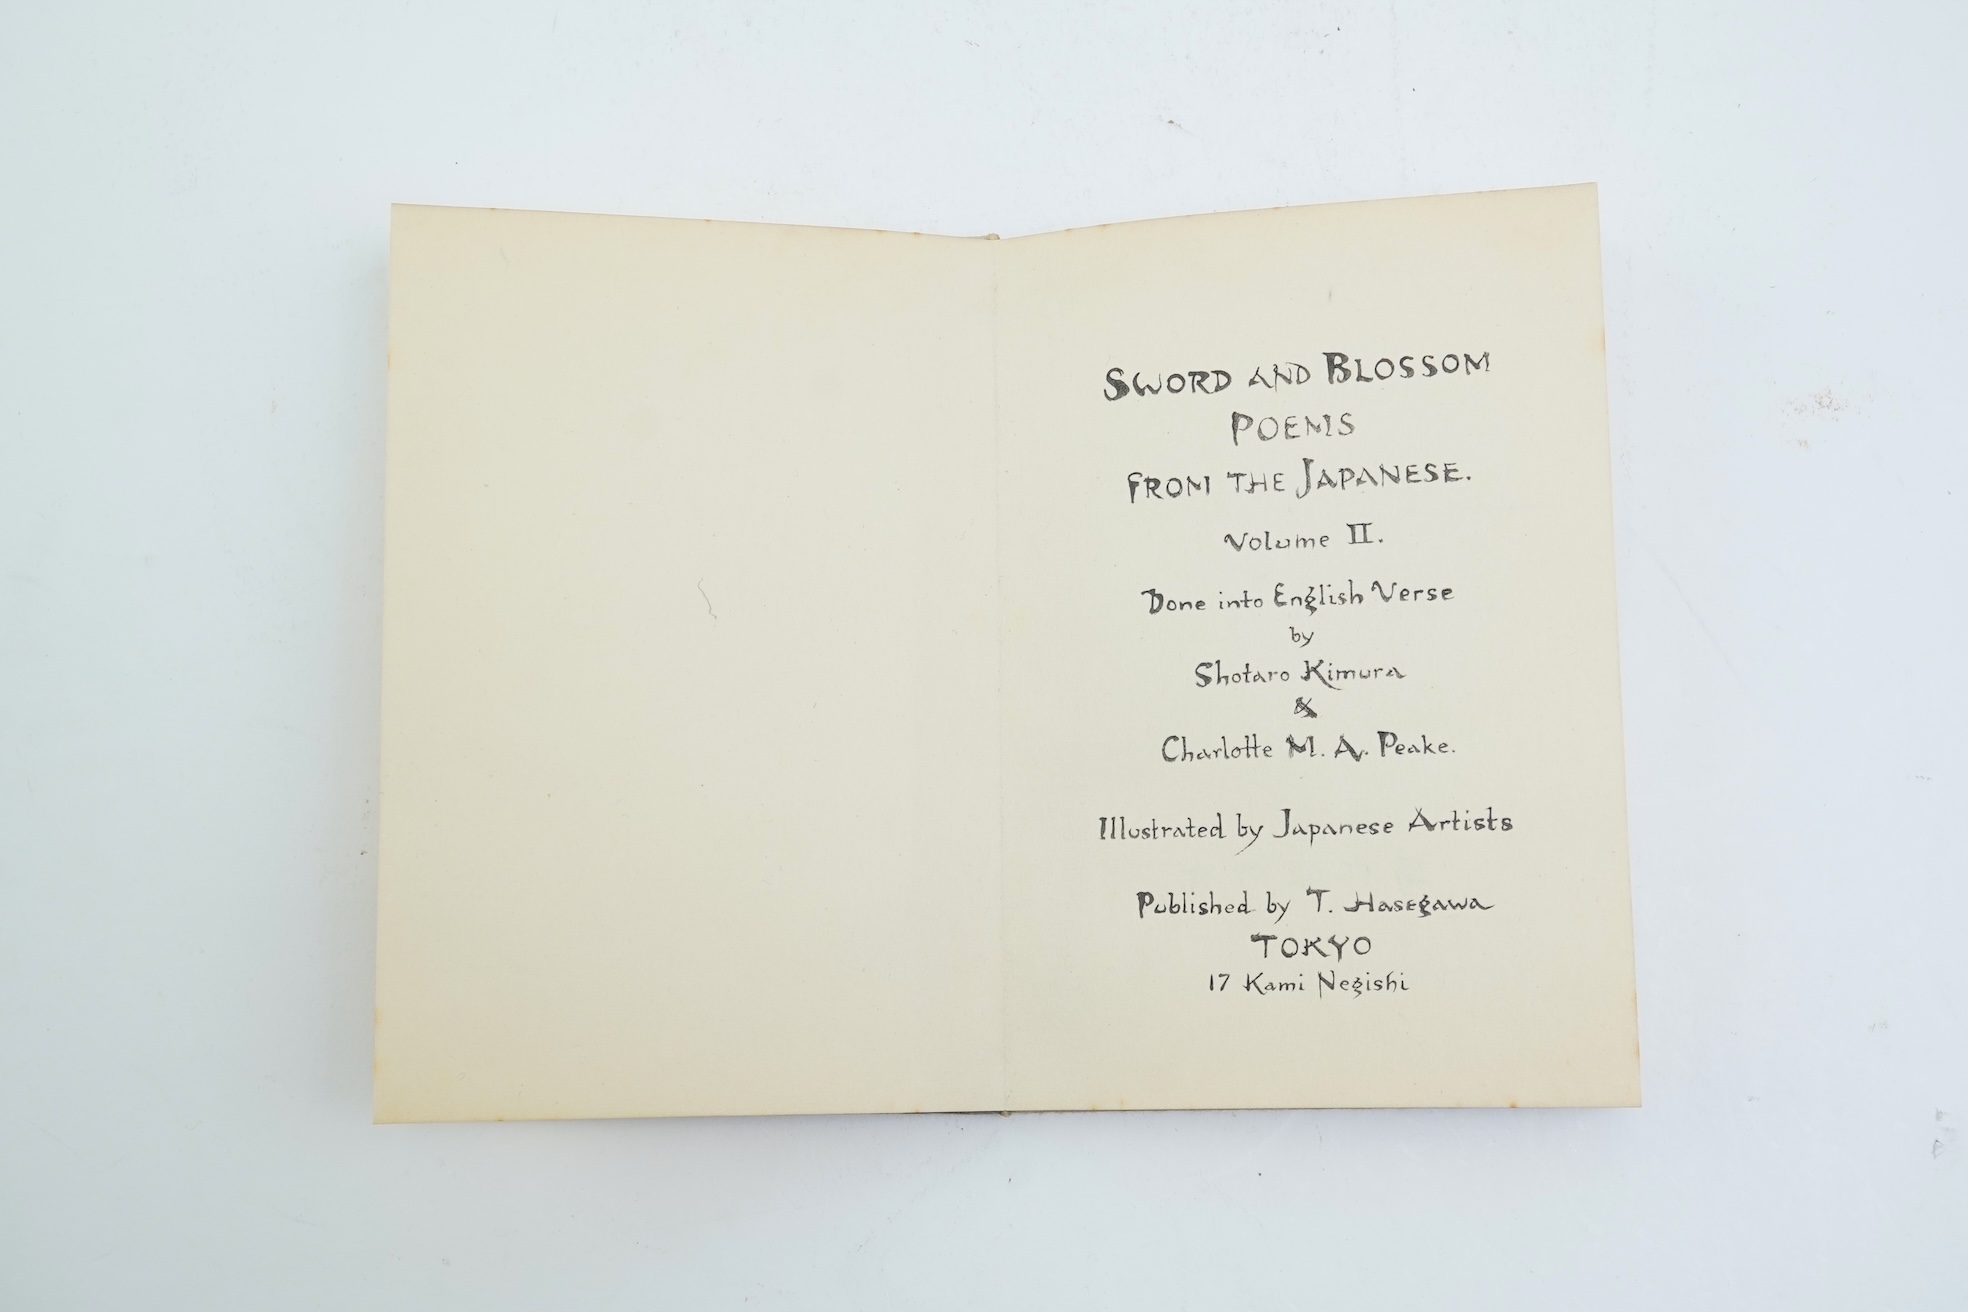 SWORD AND BLOSSOM
POEMS
FROM THE JAPANESE.
Volume II.
Done into English Verse
by
Shotaro Kimura
&
Charlotte M. A. Peake.
Illustrated by Japanese Artists
Published by T. Hasegawa
TOKYO
17 Kami Negishi